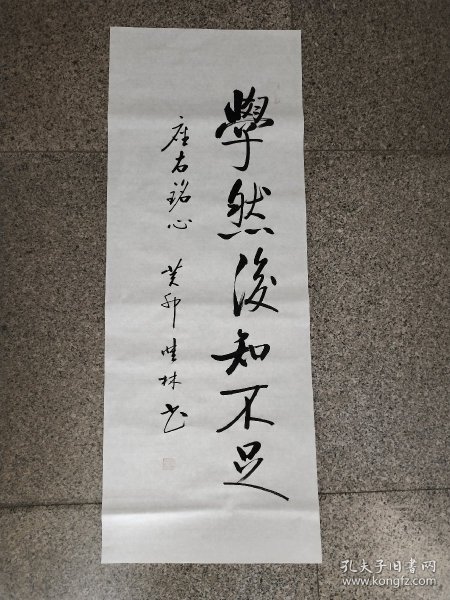 學然後知不足
座右銘心 癸卯 生林书
孔夫子旧书网
www.kongfz.com